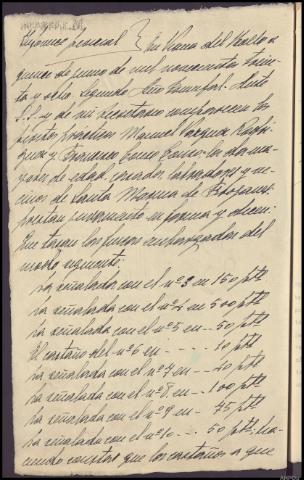 Informe pericial } En Viana del Bollo a
quince de junio de mil novecientos trein-
ta y ocho. Segundo Año Triunfal. Ante
S.S. y de mi Secretario comparecen los
peritos prácticos Manuel Vázquez Rodrí-
guez y Francisco Couso Couso; los dos ma-
yores de edad, casados, labradores y ve-
cinos de Santa Marina de
prestan juramento en forma y dicen:
Que tasan las fincas embargadas del
modo siguiente:
La señalada con el nº 3 en 150 ptas
La señalada con el nº 4 en 500 ptas
La señalada con el nº 5 en -- 50 ptas
El castaño del nº 6 en -- 10 ptas
La señalada con el nº 7 en -- 20 ptas
La señalada con el nº 8 en -- 100 ptas
La señalada con el nº 9 en -- 75 ptas
La señalada con el nº 10 --- 50 ptas, ha-
ciendo constar que los castaños a que